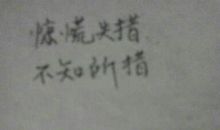 惊慌失措
不知所措